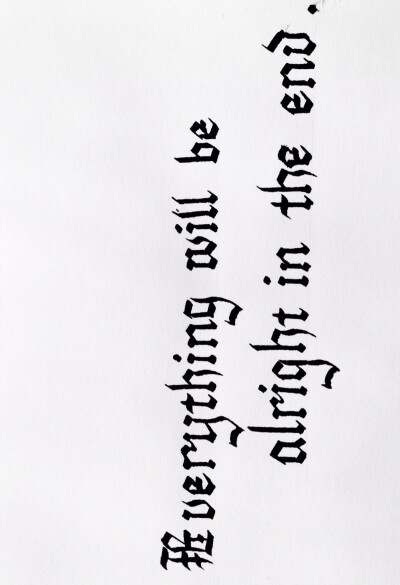 Everything will be
alright in the end.